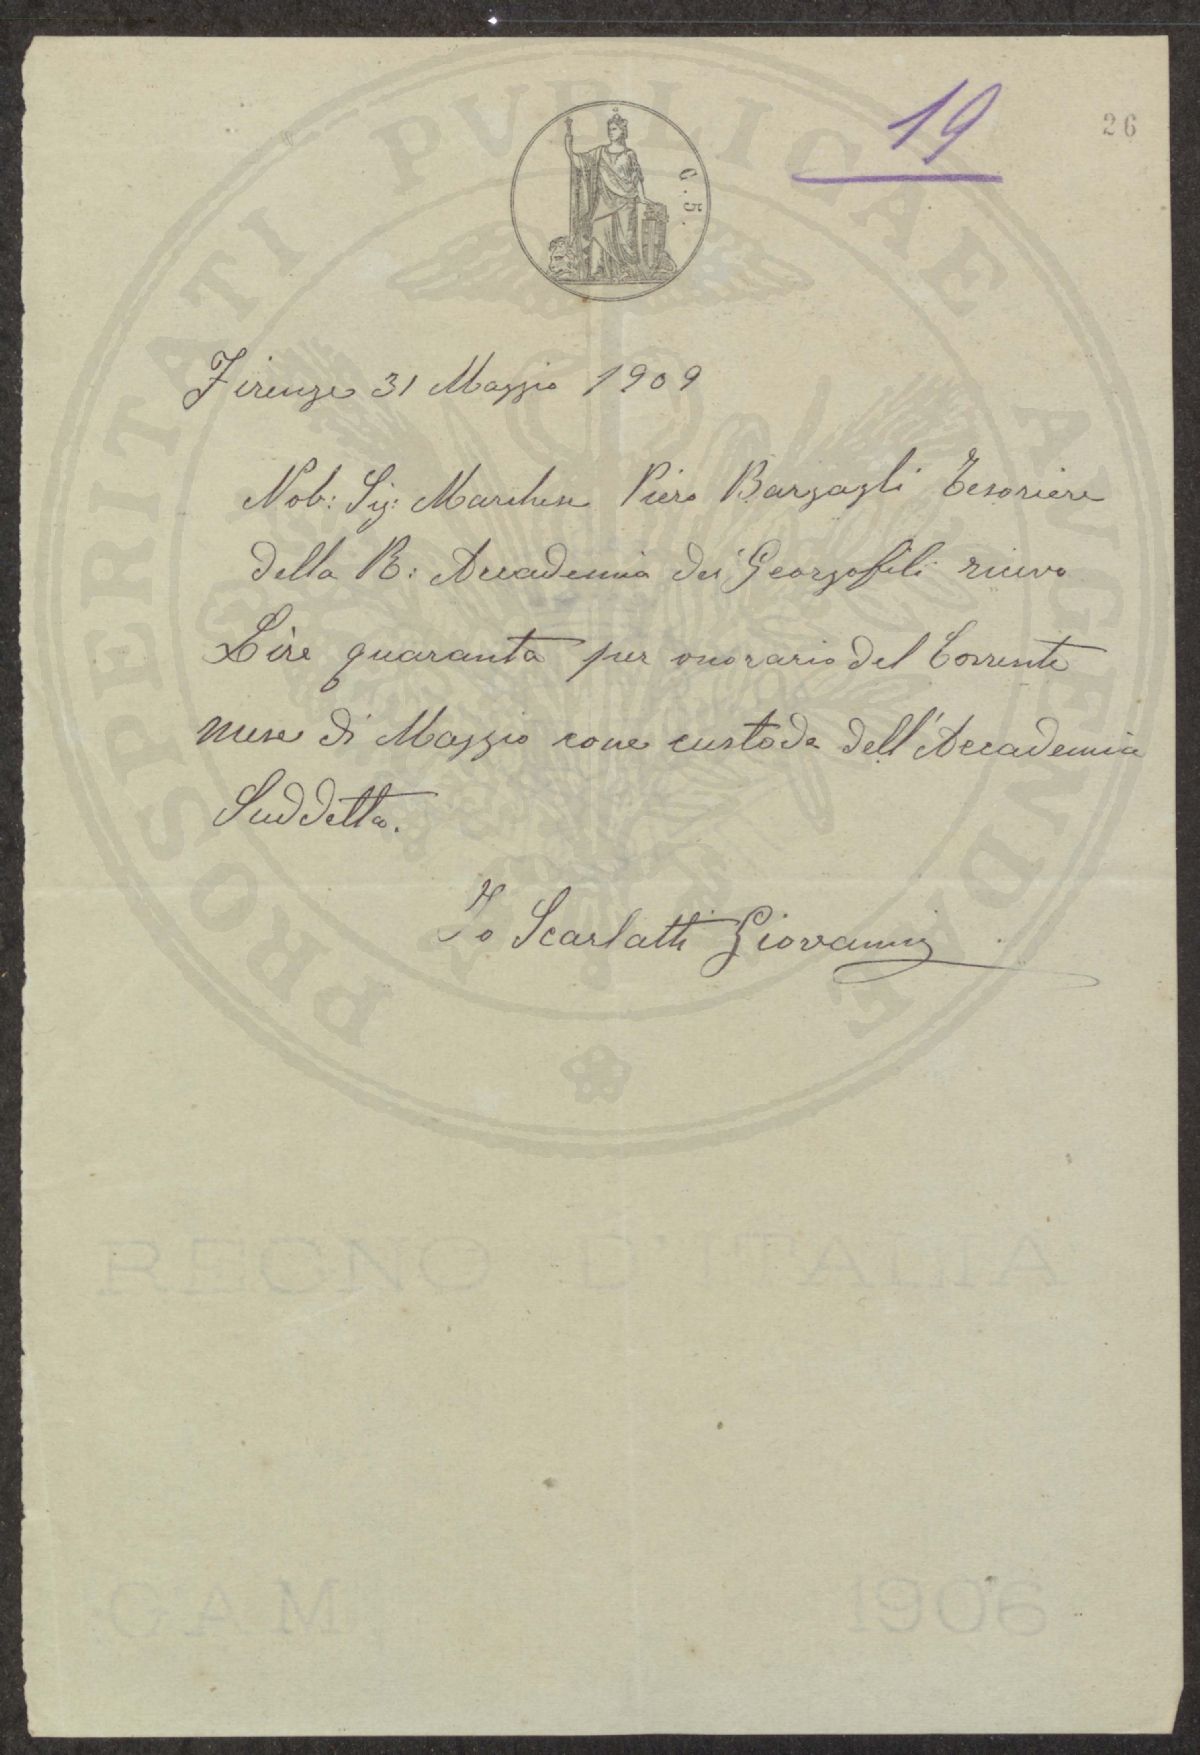 19
26
C. 5.
PROSPERITATI PVBLICAE AVGENDAE
Firenze 31 Maggio 1909
Nob: Sig: Marchese Piero Bargagli Tesoriere
della R: Accademia dei Georgofili ricevo
Lire quaranta per onorario del Corrente
mese di Maggio come custode dell'Accademia
Suddetta.
Io Scarlatti Giovanni
REGNO D'ITALIA
CAM 1906